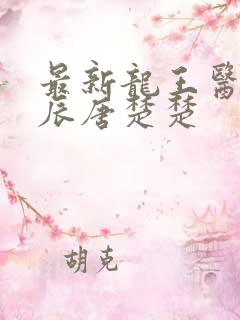 最新龍王醫
辰唐楚楚
胡克